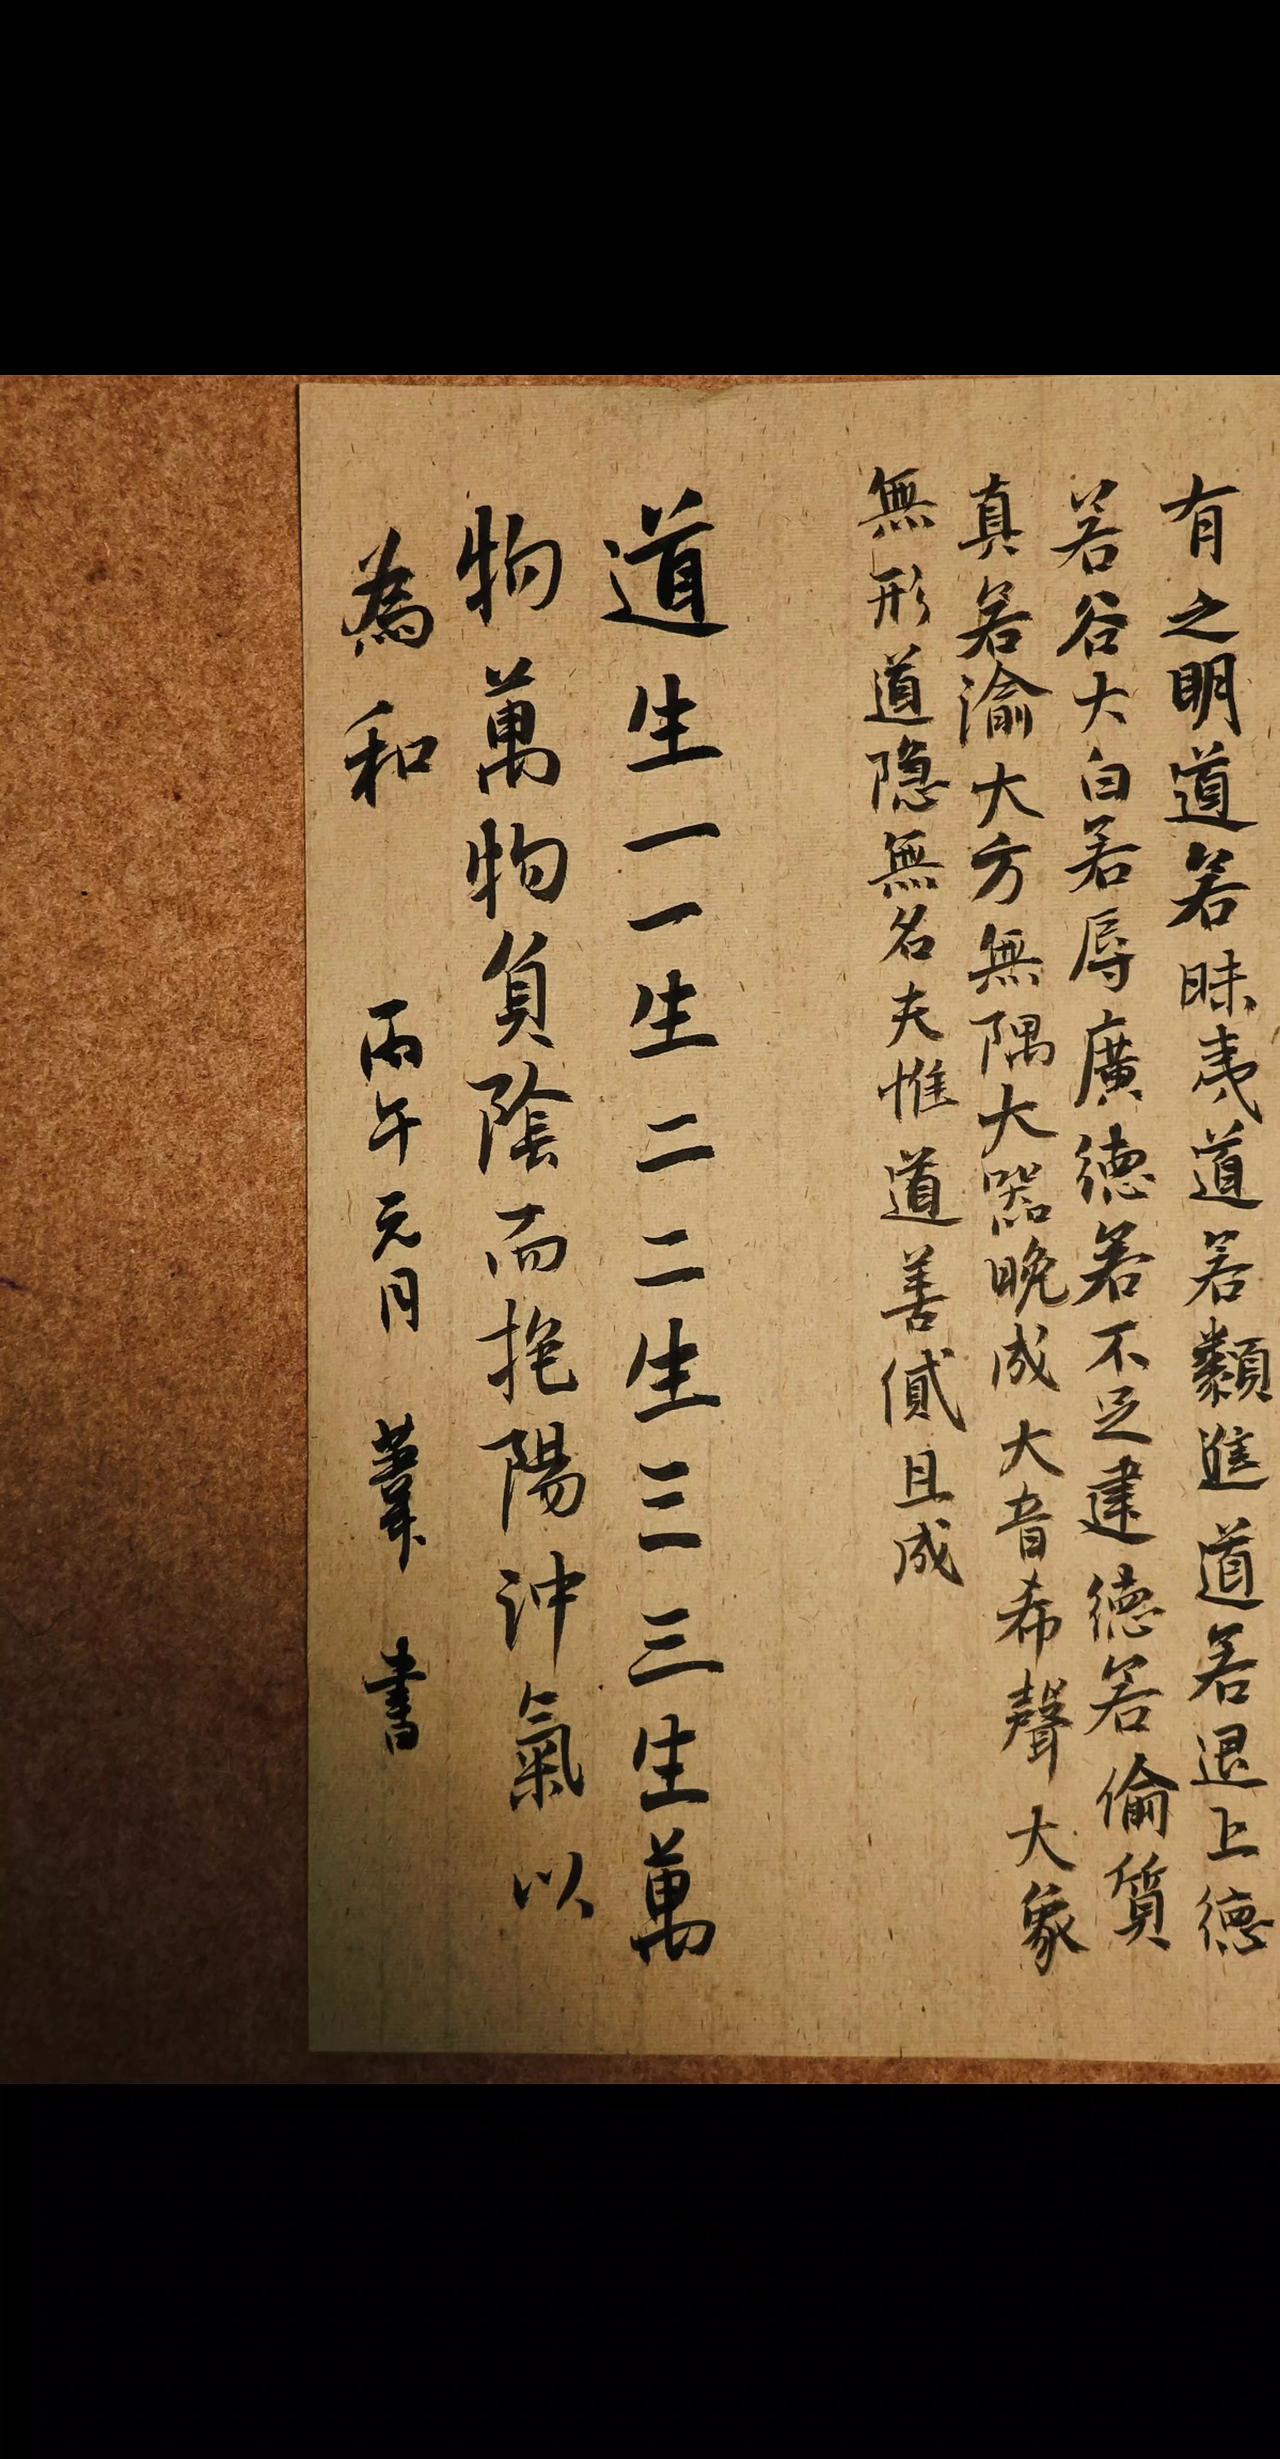 有之明道若昧夷道若纇進道若退上德
若谷大白若辱廣德若不足建德若偷質
真若渝大方無隅大器晚成大音希聲大象
無形道隐無名夫惟道善貸且成
道生一一生二二生三三生萬
物萬物負陰而抱陽沖氣以
為和 丙午元月 書